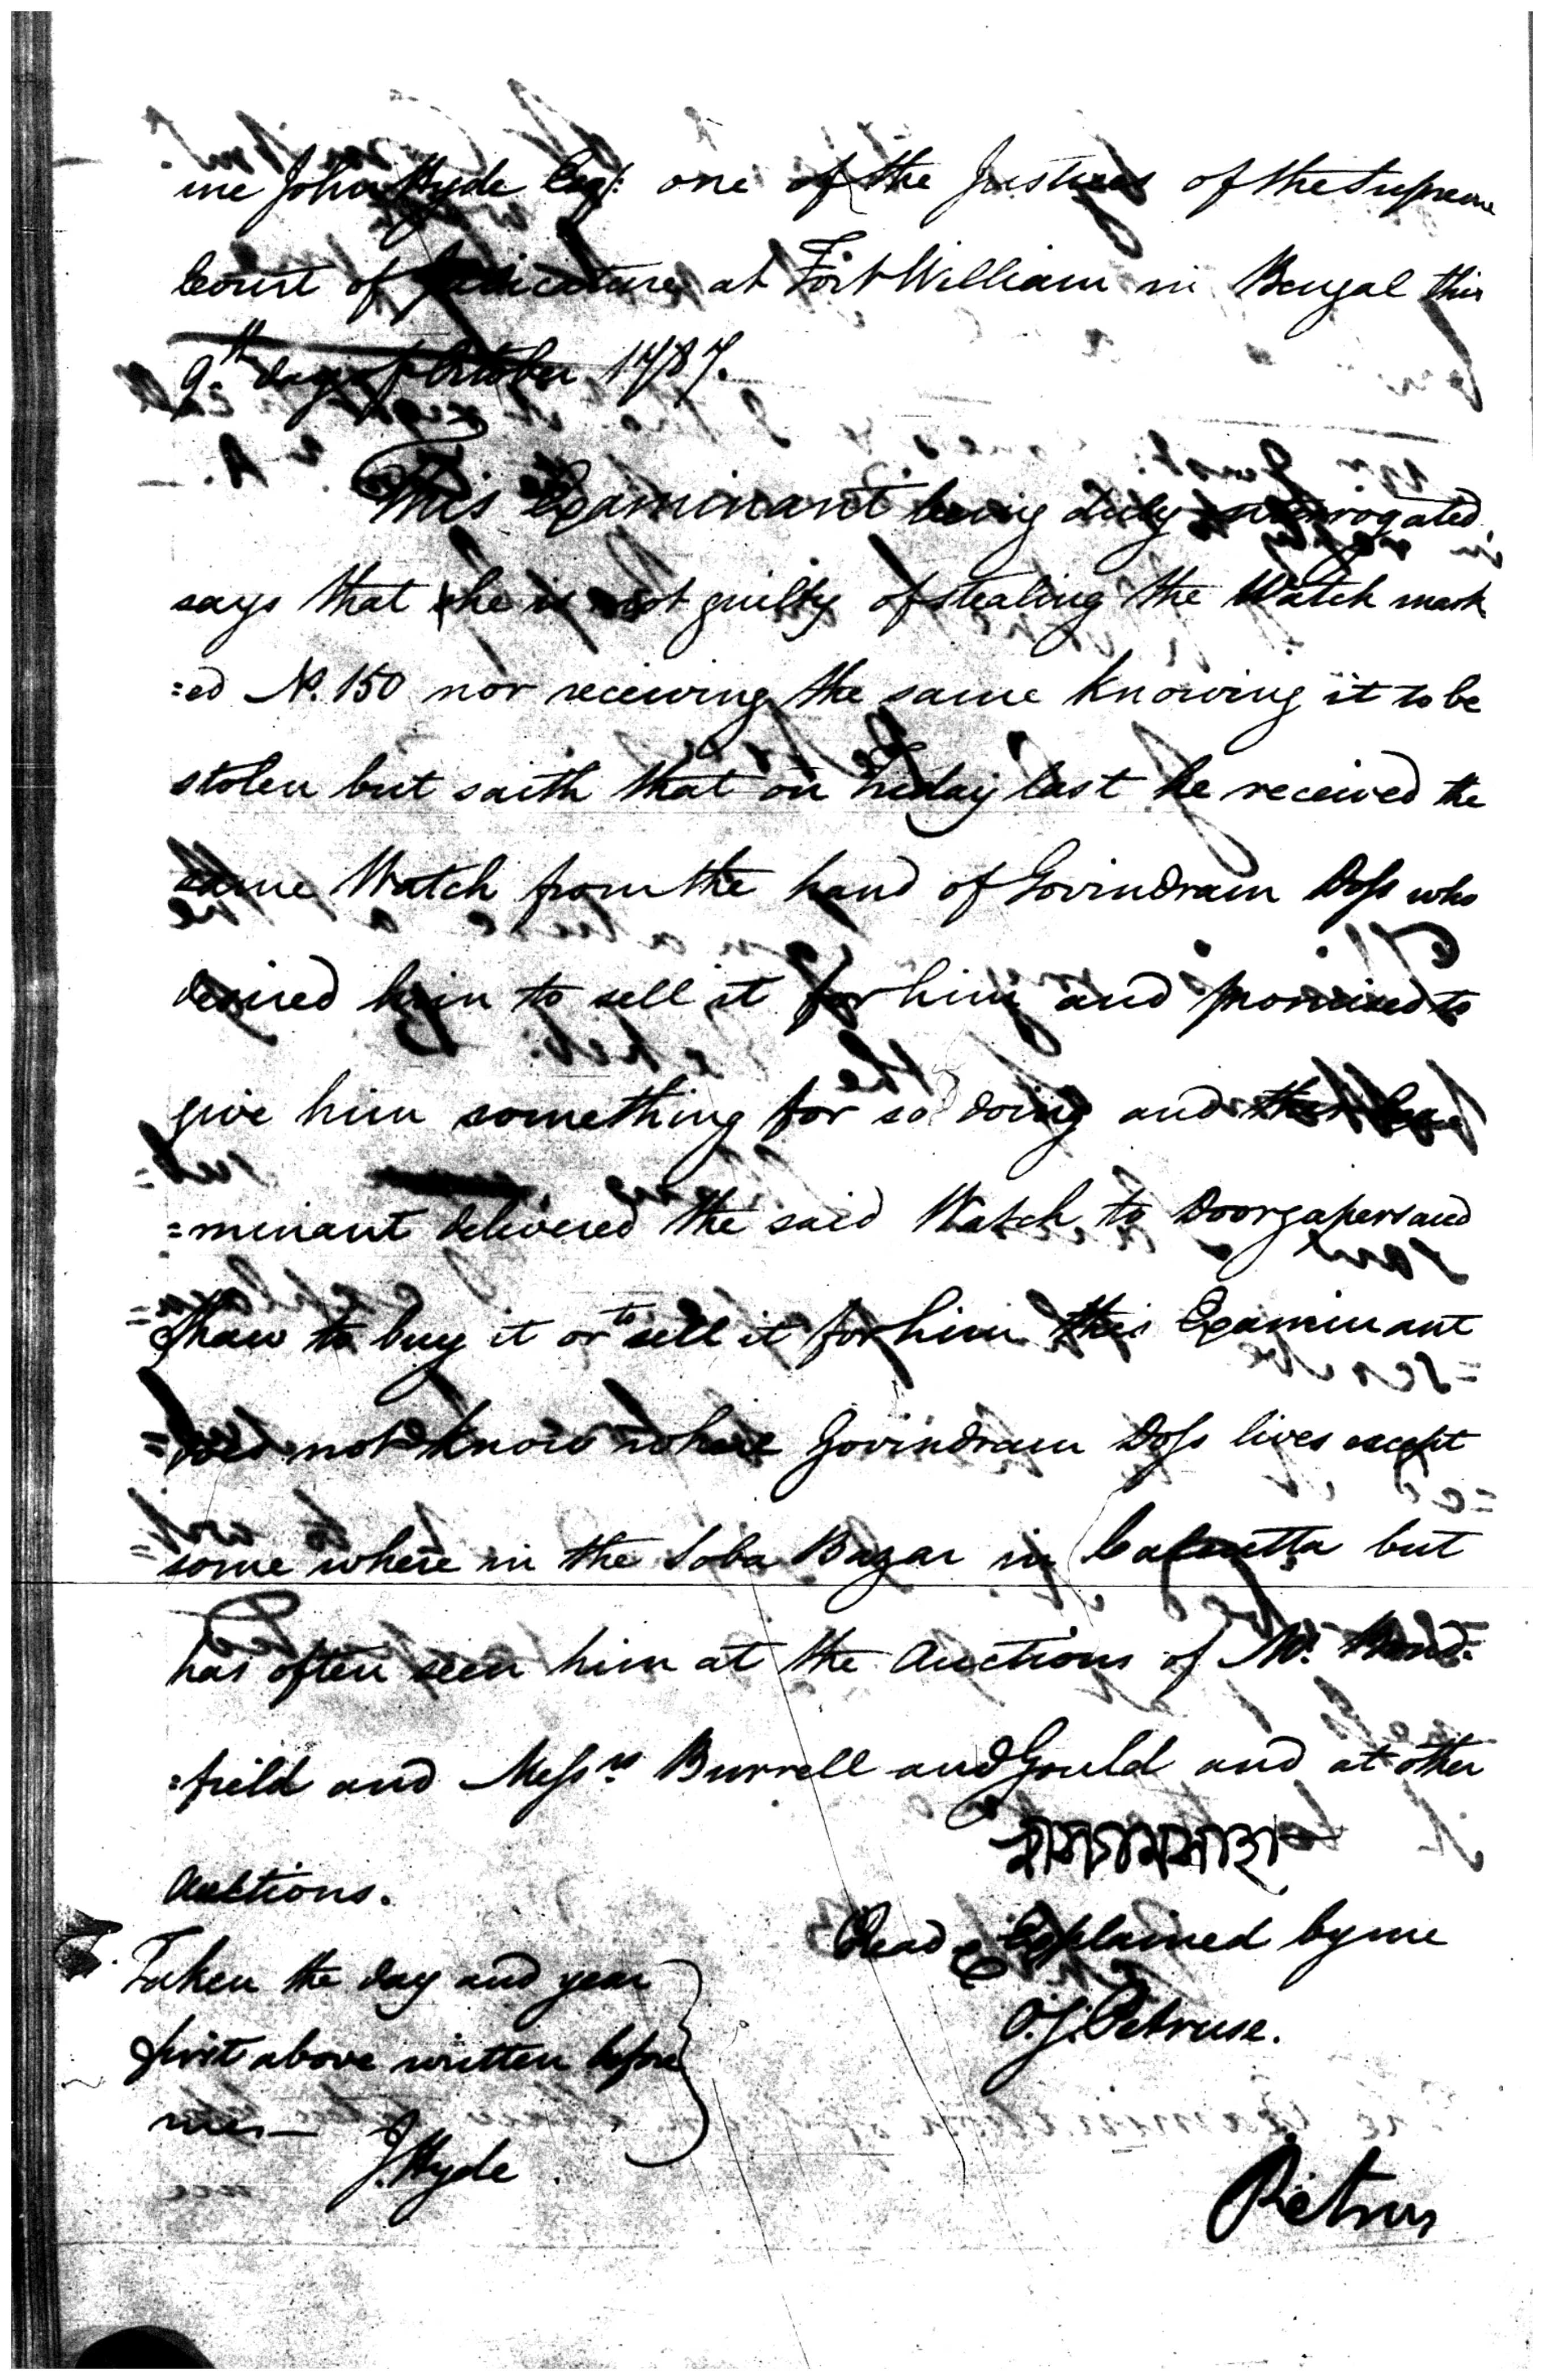 me John Hyde Esqr: one of the Justices of the Supreme
Court of Judicature at Fort William in Bengal this
9th day of October 1787.
This Examinant being duly interrogated
says that he is not guilty of stealing the Watch mark
=ed No. 150 nor receiving the same knowing it to be
stolen but saith that on Friday last he received the
same Watch from the hand of Govindram Doss who
desired him to sell it for him and promised to
give him something for so doing and this Exa
=minant delivered the said Watch to Doorgapersaud
Shaw to buy it or to sell it for him this Examinant
does not know where Govindram Doss lives except
some where in the Soba Bazar in Calcutta but
has often seen him at the Auctions of Mr.
=field and Messrs Burrell and Gould and at other
Auctions.
Read & Explained by me
P. J. Petruse.
Taken the day and year
first above written before
me —
J. Hyde
Petrus